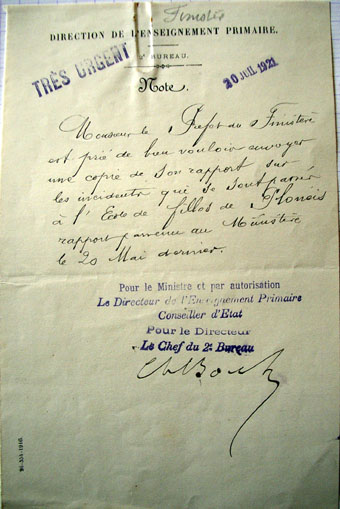 Finistère
DIRECTION DE L'ENSEIGNEMENT PRIMAIRE.
2e BUREAU.
TRÈS URGENT
20 JUIL 1921
Note.
Monsieur le Préfet du Finistère
est prié de bien vouloir envoyer
une copie de son rapport sur
les incidents qui se sont passés
à l'Ecole de filles de Plonéis
rapport parvenu au Ministère
le 20 Mai dernier.
Pour le Ministre et par autorisation
Le Directeur de l'Enseignement Primaire
Conseiller d'Etat
Pour le Directeur
Le Chef du 2e Bureau